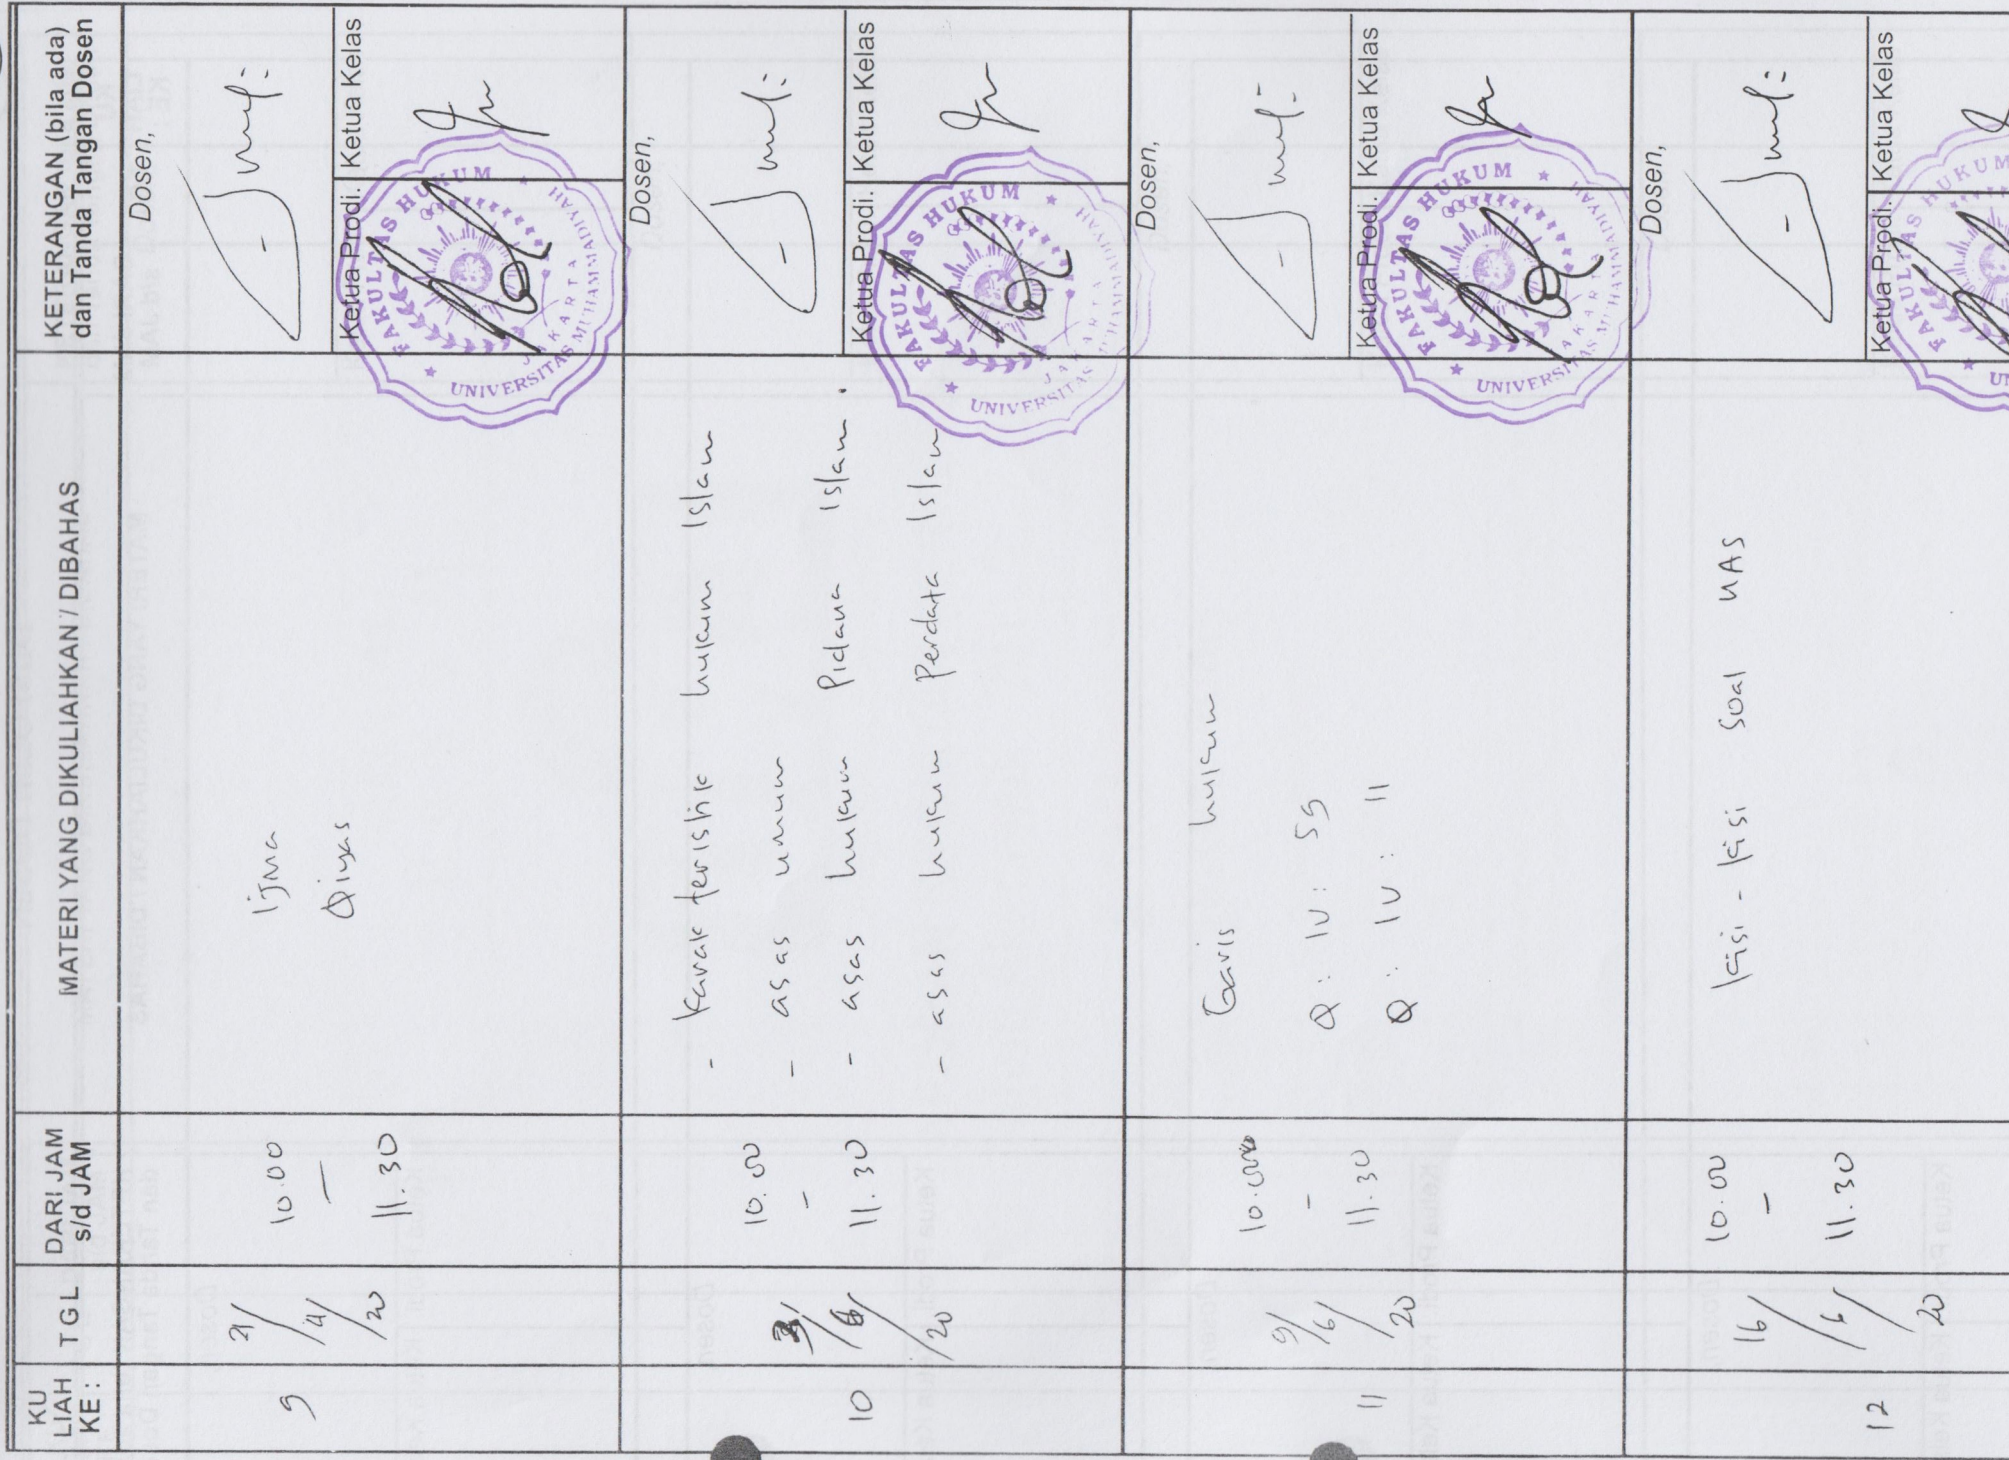 KU
LIAH
KE :
T G L
DARI JAM
s/d JAM
MATERI YANG DIKULIAHKAN / DIBAHAS
KETERANGAN (bila ada)
dan Tanda Tangan Dosen
9
21/
4/
20
10.00
-
11.30
Ijma
Qiyas
Dosen,
Ketua Prodi.
Ketua Kelas
FAKULTAS HUKUM
UNIVERSITAS MUHAMMADIYAH
JAKARTA
10
/6
/20
10.00
-
11.30
- karakteristik hukum Islam
- asas umum
- asas hukum Pidana Islam.
- asas hukum Perdata Islam
Dosen,
Ketua Prodi.
Ketua Kelas
FAKULTAS HUKUM
UNIVERSITAS MUHAMMADIYAH
JAKARTA
11
9/
6/
20
10.00
-
11.30
Garis hukum
Q : IV : 59
Q : IV : 11
Dosen,
Ketua Prodi.
Ketua Kelas
FAKULTAS HUKUM
UNIVERSITAS MUHAMMADIYAH
JAKARTA
12
16/
6/
20
10.00
-
11.30
kisi - kisi soal UAS
Dosen,
Ketua Prodi.
Ketua Kelas
FAKULTAS HUKUM
UN